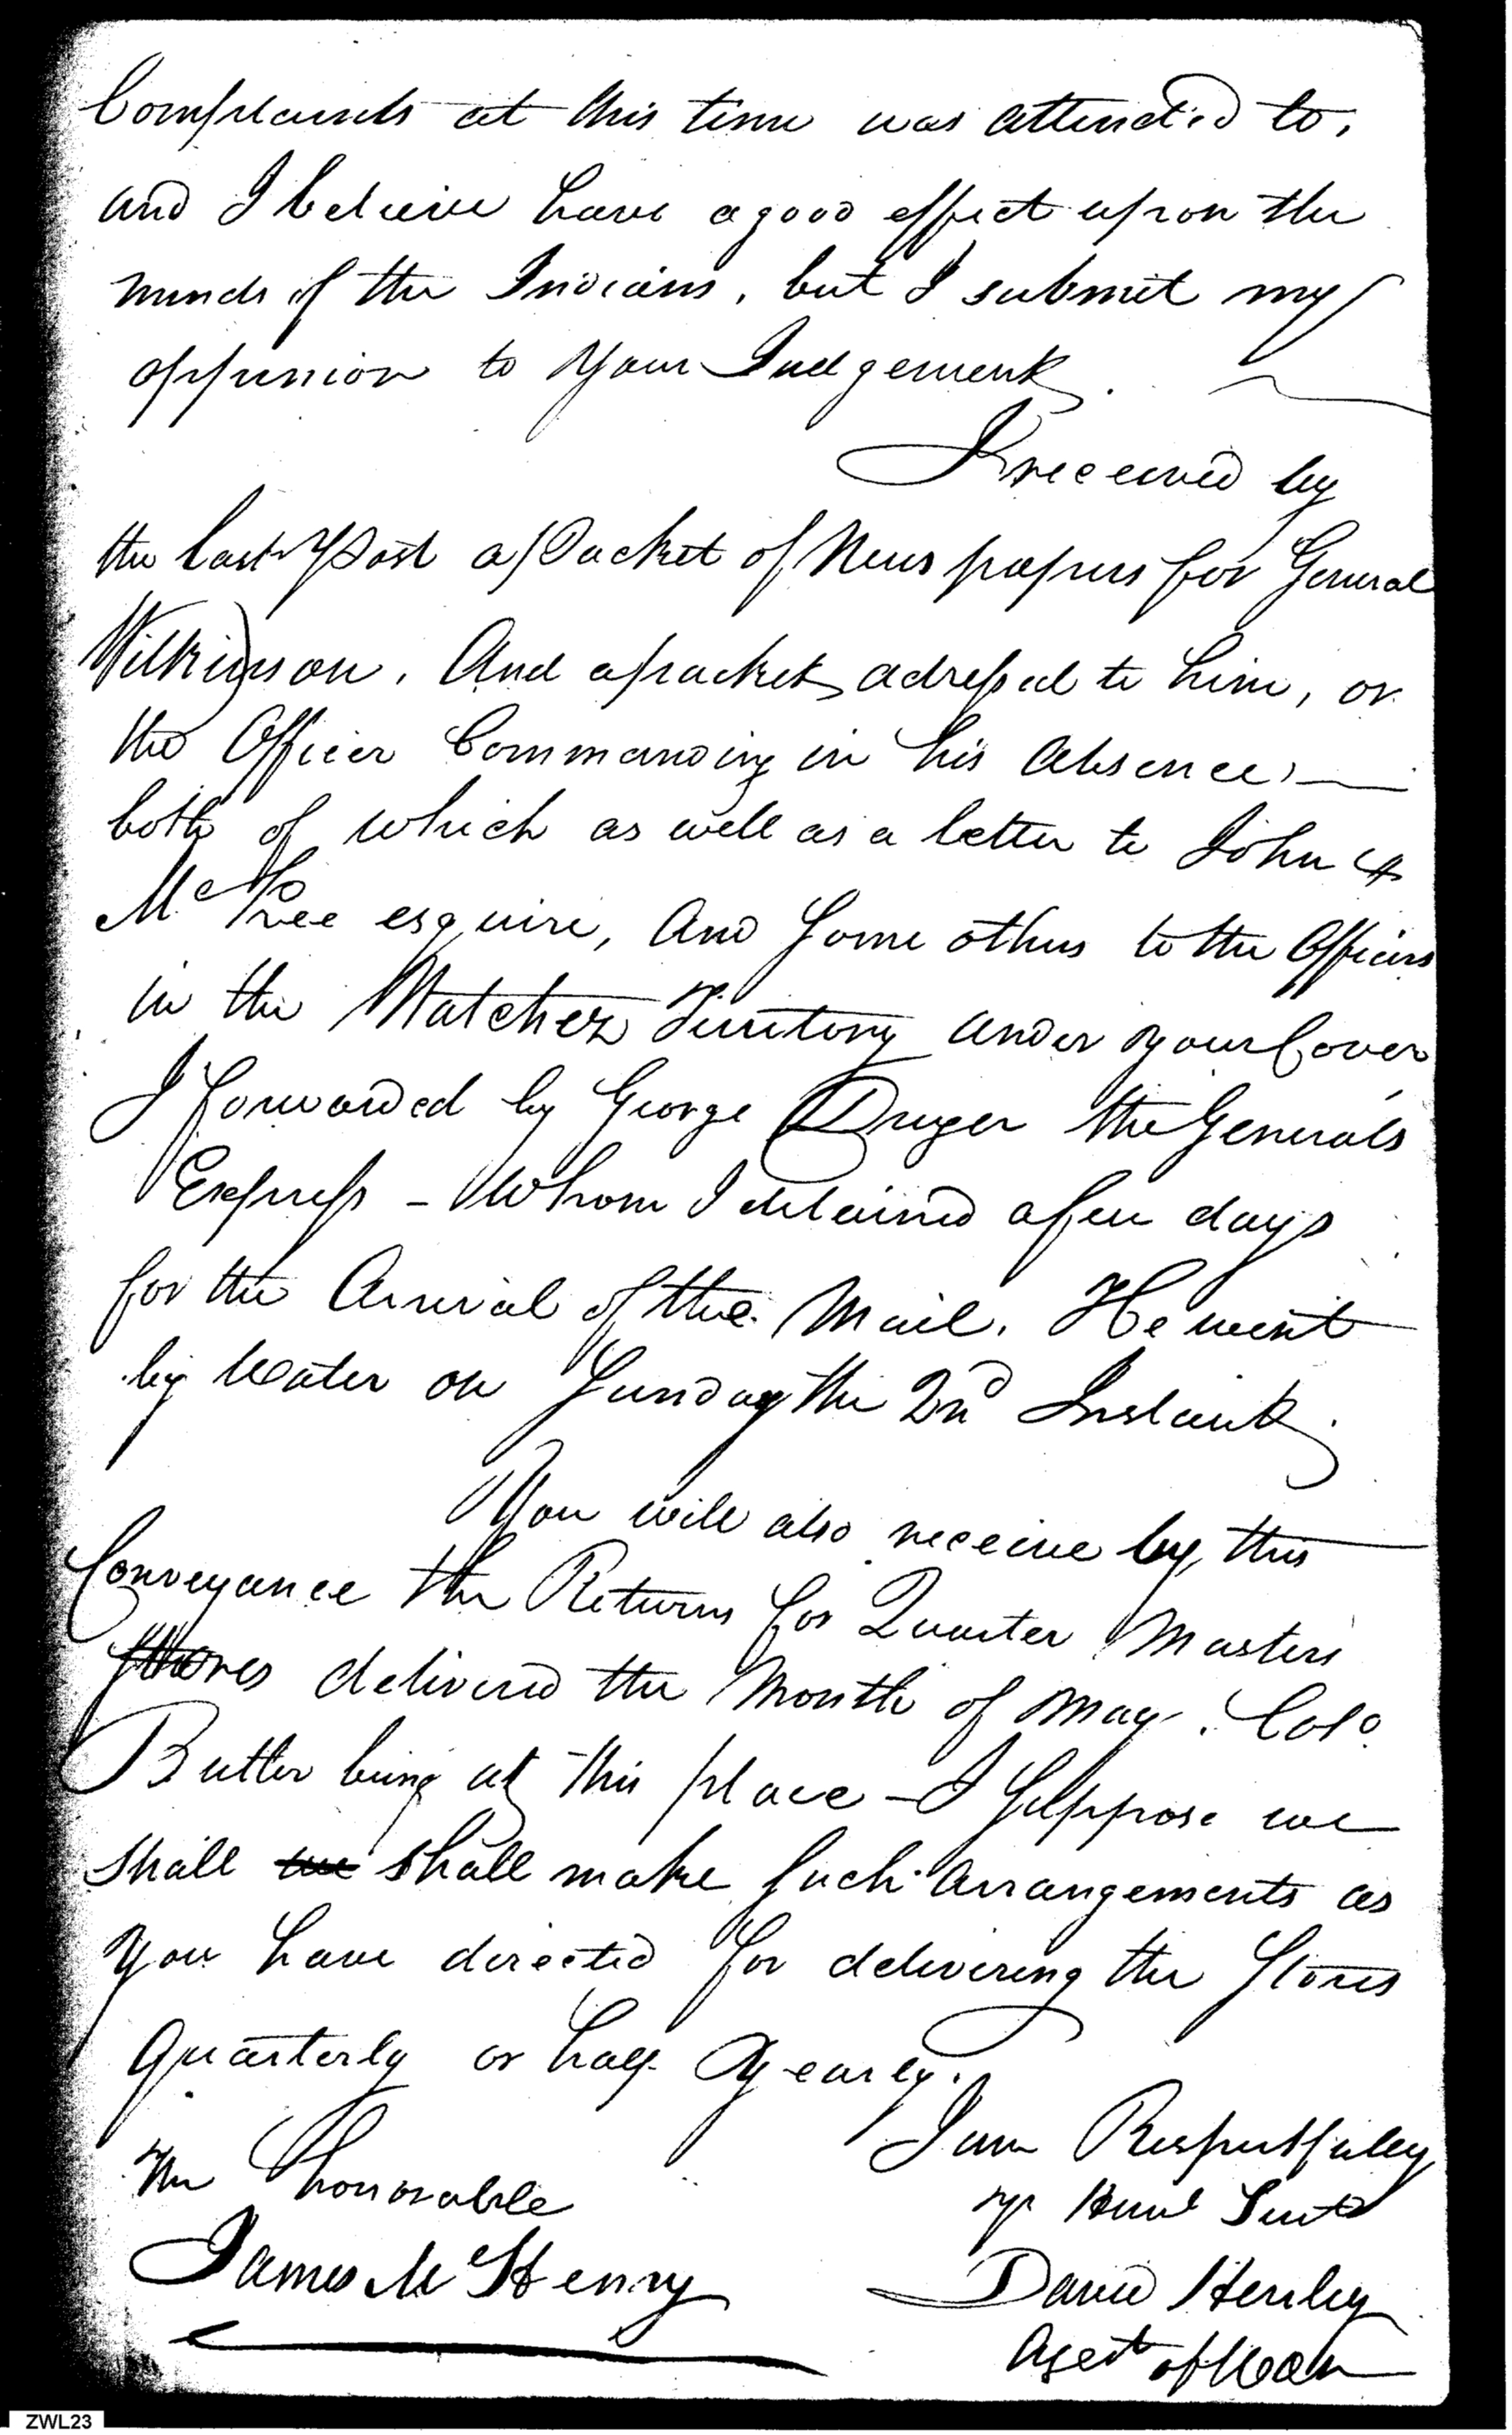 Complaints at this time was attended to,
and I beleive have a good effect upon the
minds of the Indians, but I submit my
oppinion to Your Judgement.
I received by
the last Post a Packet of News papers for General
Wilkinson. And a packet, adressed to him, or
the Officer Commanding in his Absence,—
both of which as well as a letter to John
McKee esquire, And Some others to the Officers
in the Natchez Territory under your Cover
I forwarded by George the Generals
Express - Whom I detained a few days
for the Arrival of the Mail. He went
by Water on Sunday the 2nd Instant.
You will also receive by this
Conveyance the Returns for Quarter Masters
Stores delivered the Month of May. Colo
Butler being at this place - I Suppose we
shall we shall make Such Arrangements as
You have directed for delivering the Stores
Quarterly or half Yearly.
I am Respectfully
The Honorable
yr Huml Servt
James McHenry
David Henley
Agent of War
ZWL23